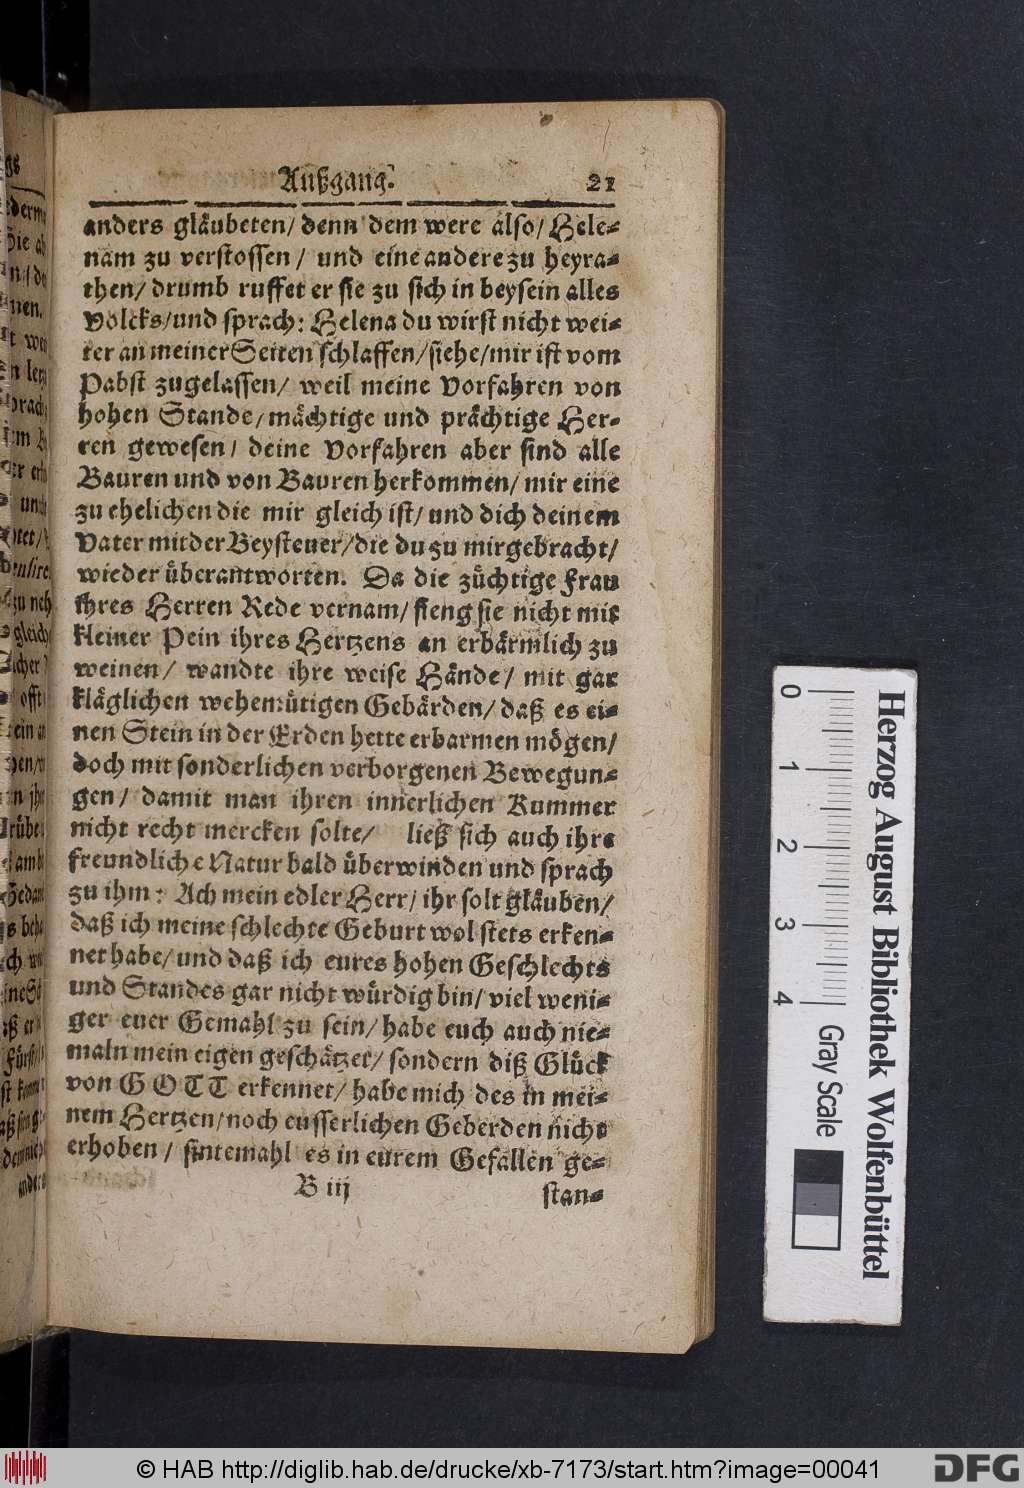 Außgang. 21
anders gläubeten/ denn dem were also/ Hele-
nam zu verstossen/ und eine andere zu heyra-
then/ drumb ruffet er sie zu sich in beysein alles
Volcks/ und sprach: Helena du wirst nicht wei-
ter an meiner Seiten schlaffen/ siehe/ mir ist vom
Pabst zugelassen/ weil meine Vorfahren von
hohen Stande/ mächtige und prächtige Her-
ren gewesen/ deine Vorfahren aber sind alle
Bauren und von Bauren herkommen/ mir eine
zu ehelichen die mir gleich ist/ und dich deinem
Vater mit der Beysteuer/ die du zu mir gebracht/
wieder überantworten. Da die züchtige Frau
ihres Herren Rede vernam/ fieng sie nicht mit
kleiner Pein ihres Hertzens an erbärmlich zu
weinen/ wandte ihre weise Hände/ mit gar
kläglichen wehemütigen Gebärden/ daß es ei-
nen Stein in der Erden hette erbarmen mögen/
doch mit sonderlichen verborgenen Bewegun-
gen/ damit man ihren innerlichen Kummer
nicht recht mercken solte/ ließ sich auch ihre
freundliche Natur bald überwinden und sprach
zu ihm: Ach mein edler Herr/ ihr solt gläuben/
daß ich meine schlechte Geburt wol stets erken-
net habe/ und daß ich eures hohen Geschlechts
und Standes gar nicht würdig bin/ viel weni-
ger euer Gemahl zu sein/ habe euch auch nie-
maln mein eigen geschätzet/ sondern diß Glück
von GOTT erkennet/ habe mich des in mei-
nem Hertzen/ noch eusserlichen Geberden nicht
erhoben/ sintemahl es in eurem Gefallen ge-
B iij stan-
Herzog August Bibliothek Wolfenbüttel
0 1 2 3 4 Gray Scale
© HAB http://diglib.hab.de/drucke/xb-7173/start.htm?image=00041
DFG